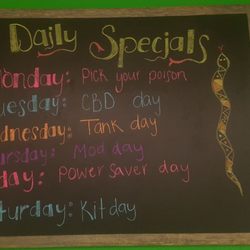 Daily Specials
Monday: Pick your poison
Tuesday: CBD day
Wednesday: Tank day
Thursday: Mod day
Friday: Power Saver day
Saturday: Kit day